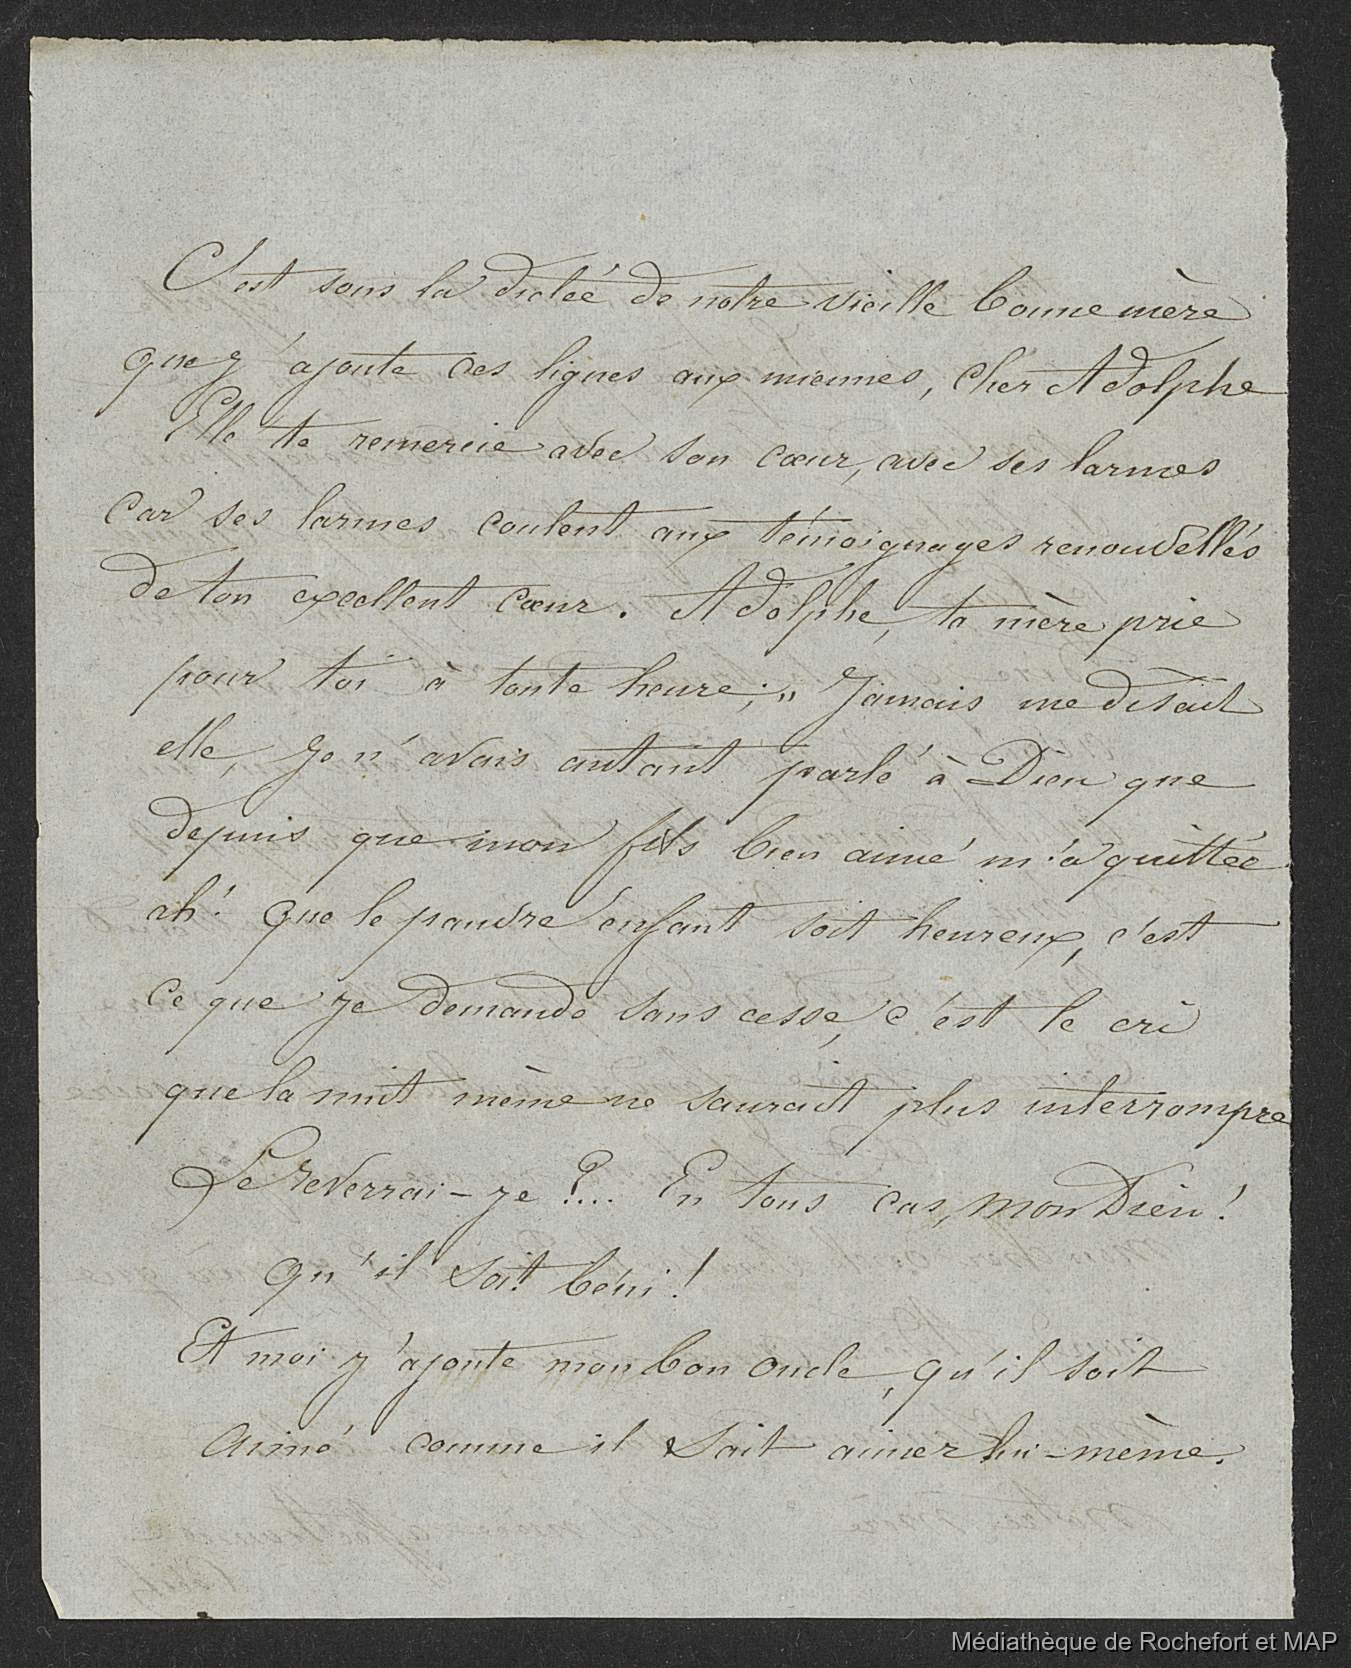 C'est sous la dictée de notre vieille bonne mère
que j'ajoute ces lignes aux miennes, cher Adolphe
Elle te remercie avec son cœur, avec ses larmes
car ses larmes coulent aux témoignages renouvellés
de ton excellent cœur. Adolphe, ta mère prie
pour toi à toute heure; „ Jamais me disait
elle, je n'avais autant parlé à Dieu que
depuis que mon fils bien aimé m'a quittée
ah! que le pauvre enfant soit heureux, c'est
ce que je demande sans cesse, c'est le cri
que la nuit même ne saurait plus interrompre
Le reverrai-je ?... En tous cas, mon Dieu!
qu'il soit béni!
Et moi j'ajoute mon bon oncle, qu'il soit
aimé comme il sait aimer lui-même.
Médiathèque de Rochefort et MAP